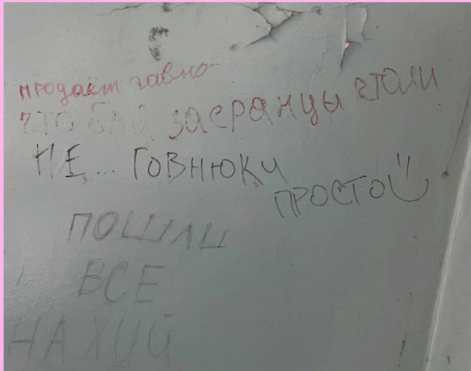 продают гавно
что они засранцы чтоли
НЕ... ГОВНЮКИ
ПРОСТО
ПОШЛИ
ВСЕ
НАХУЙ